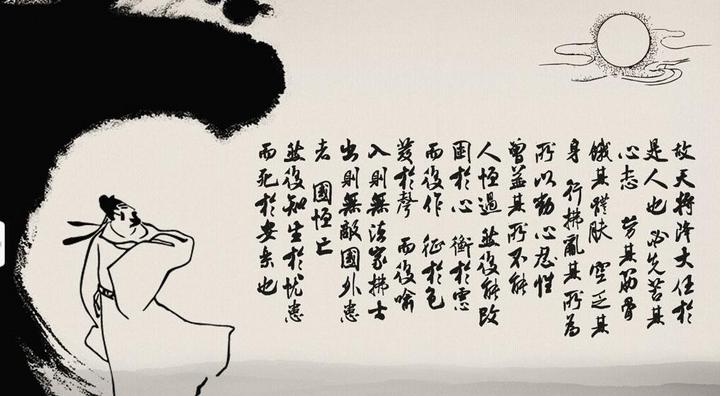 故天将降大任於
是人也 必先苦其
心志 劳其筋骨
饿其體肤 空乏其
身 行拂亂其所為
所以動心忍性
曾益其所不能
人恒過 然後能改
困於心 衡於慮
而後作 征於色
發於聲 而後喻
入則無法家拂士
出則無敵國外患
者 國恒亡
然後知生於忧患
而死於安樂也